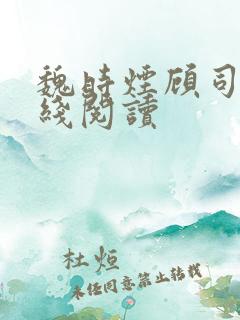 魏时煙顾司
綫閱讀
杜烜
未经同意禁止转载